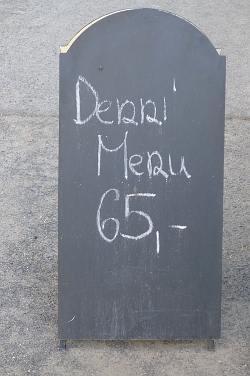 Denní
Menu
65,-